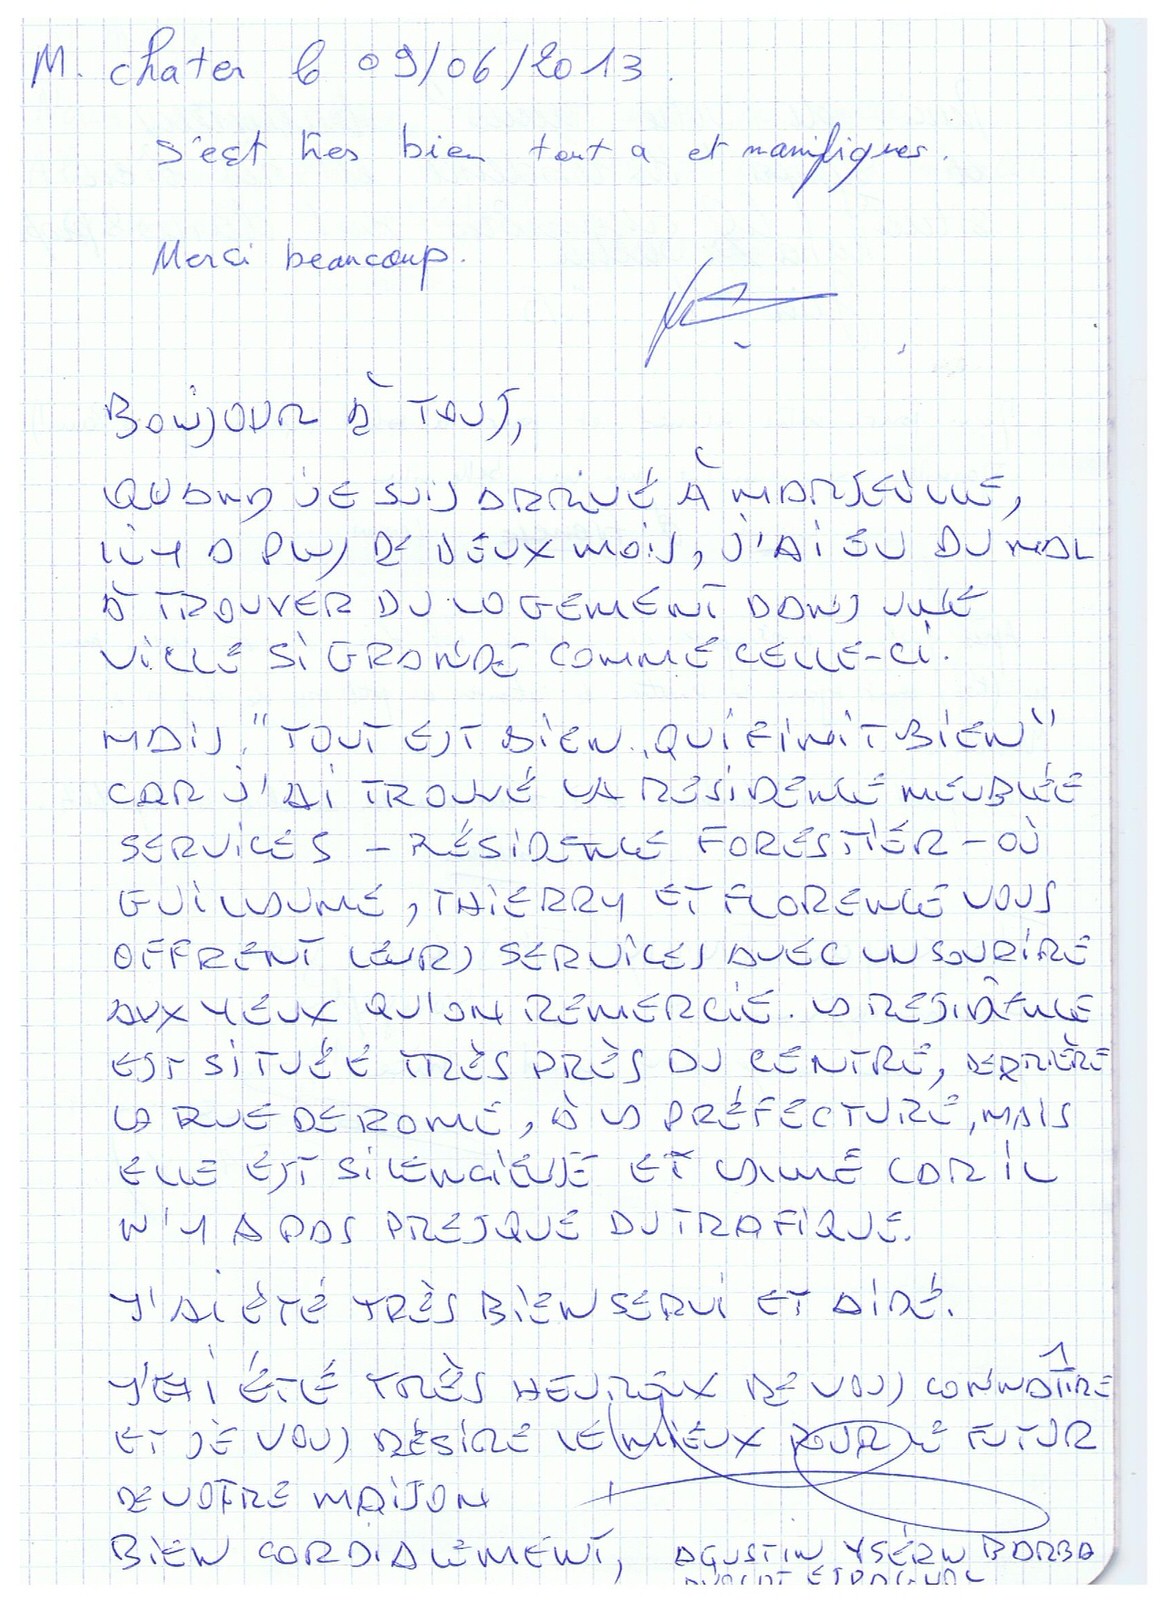 M. chater le 09/06/2013.
s'est très bien tout a et manifiques.
Merci beaucoup.
BONJOUR À TOUS,
QUAND JE SUIS ARRIVÉ À MARSEILLE,
IL Y A PLUS DE DEUX MOIS, J'AI EU DU MAL
À TROUVER DU LOGEMENT DANS UNE
VILLE SI GRANDE COMME CELLE-CI.
MAIS "TOUT EST BIEN QUI FINIT BIEN"
CAR J'AI TROUVÉ LA RÉSIDENCE MEUBLÉE
SERVICES - RÉSIDENCE FORESTIER - OÙ
GUILLAUME, THIERRY ET FLORENCE VOUS
OFFRENT LEURS SERVICES AVEC UN SOURIRE
AUX YEUX QU'ON REMERCIE. LA RESIDENCE
EST SITUÉE TRÈS PRÈS DU CENTRE, DERRIÈRE
LA RUE DE ROME, À LA PRÉFECTURE, MAIS
ELLE EST SILENCIEUSE ET CALME CAR IL
N'Y A PAS PRESQUE DU TRAFIQUE.
J'AI ÉTÉ TRÈS BIEN SERVI ET AIDÉ.
J'AI ÉTÉ TRÈS HEUREUX DE VOUS CONNAÎTRE
ET JE VOUS DÉSIRE LE MIEUX POUR LE FUTUR
DE VOTRE MAISON
BIEN CORDIALEMENT, AGUSTIN YSERN BARBA
AVOCAT ESPAGNOL